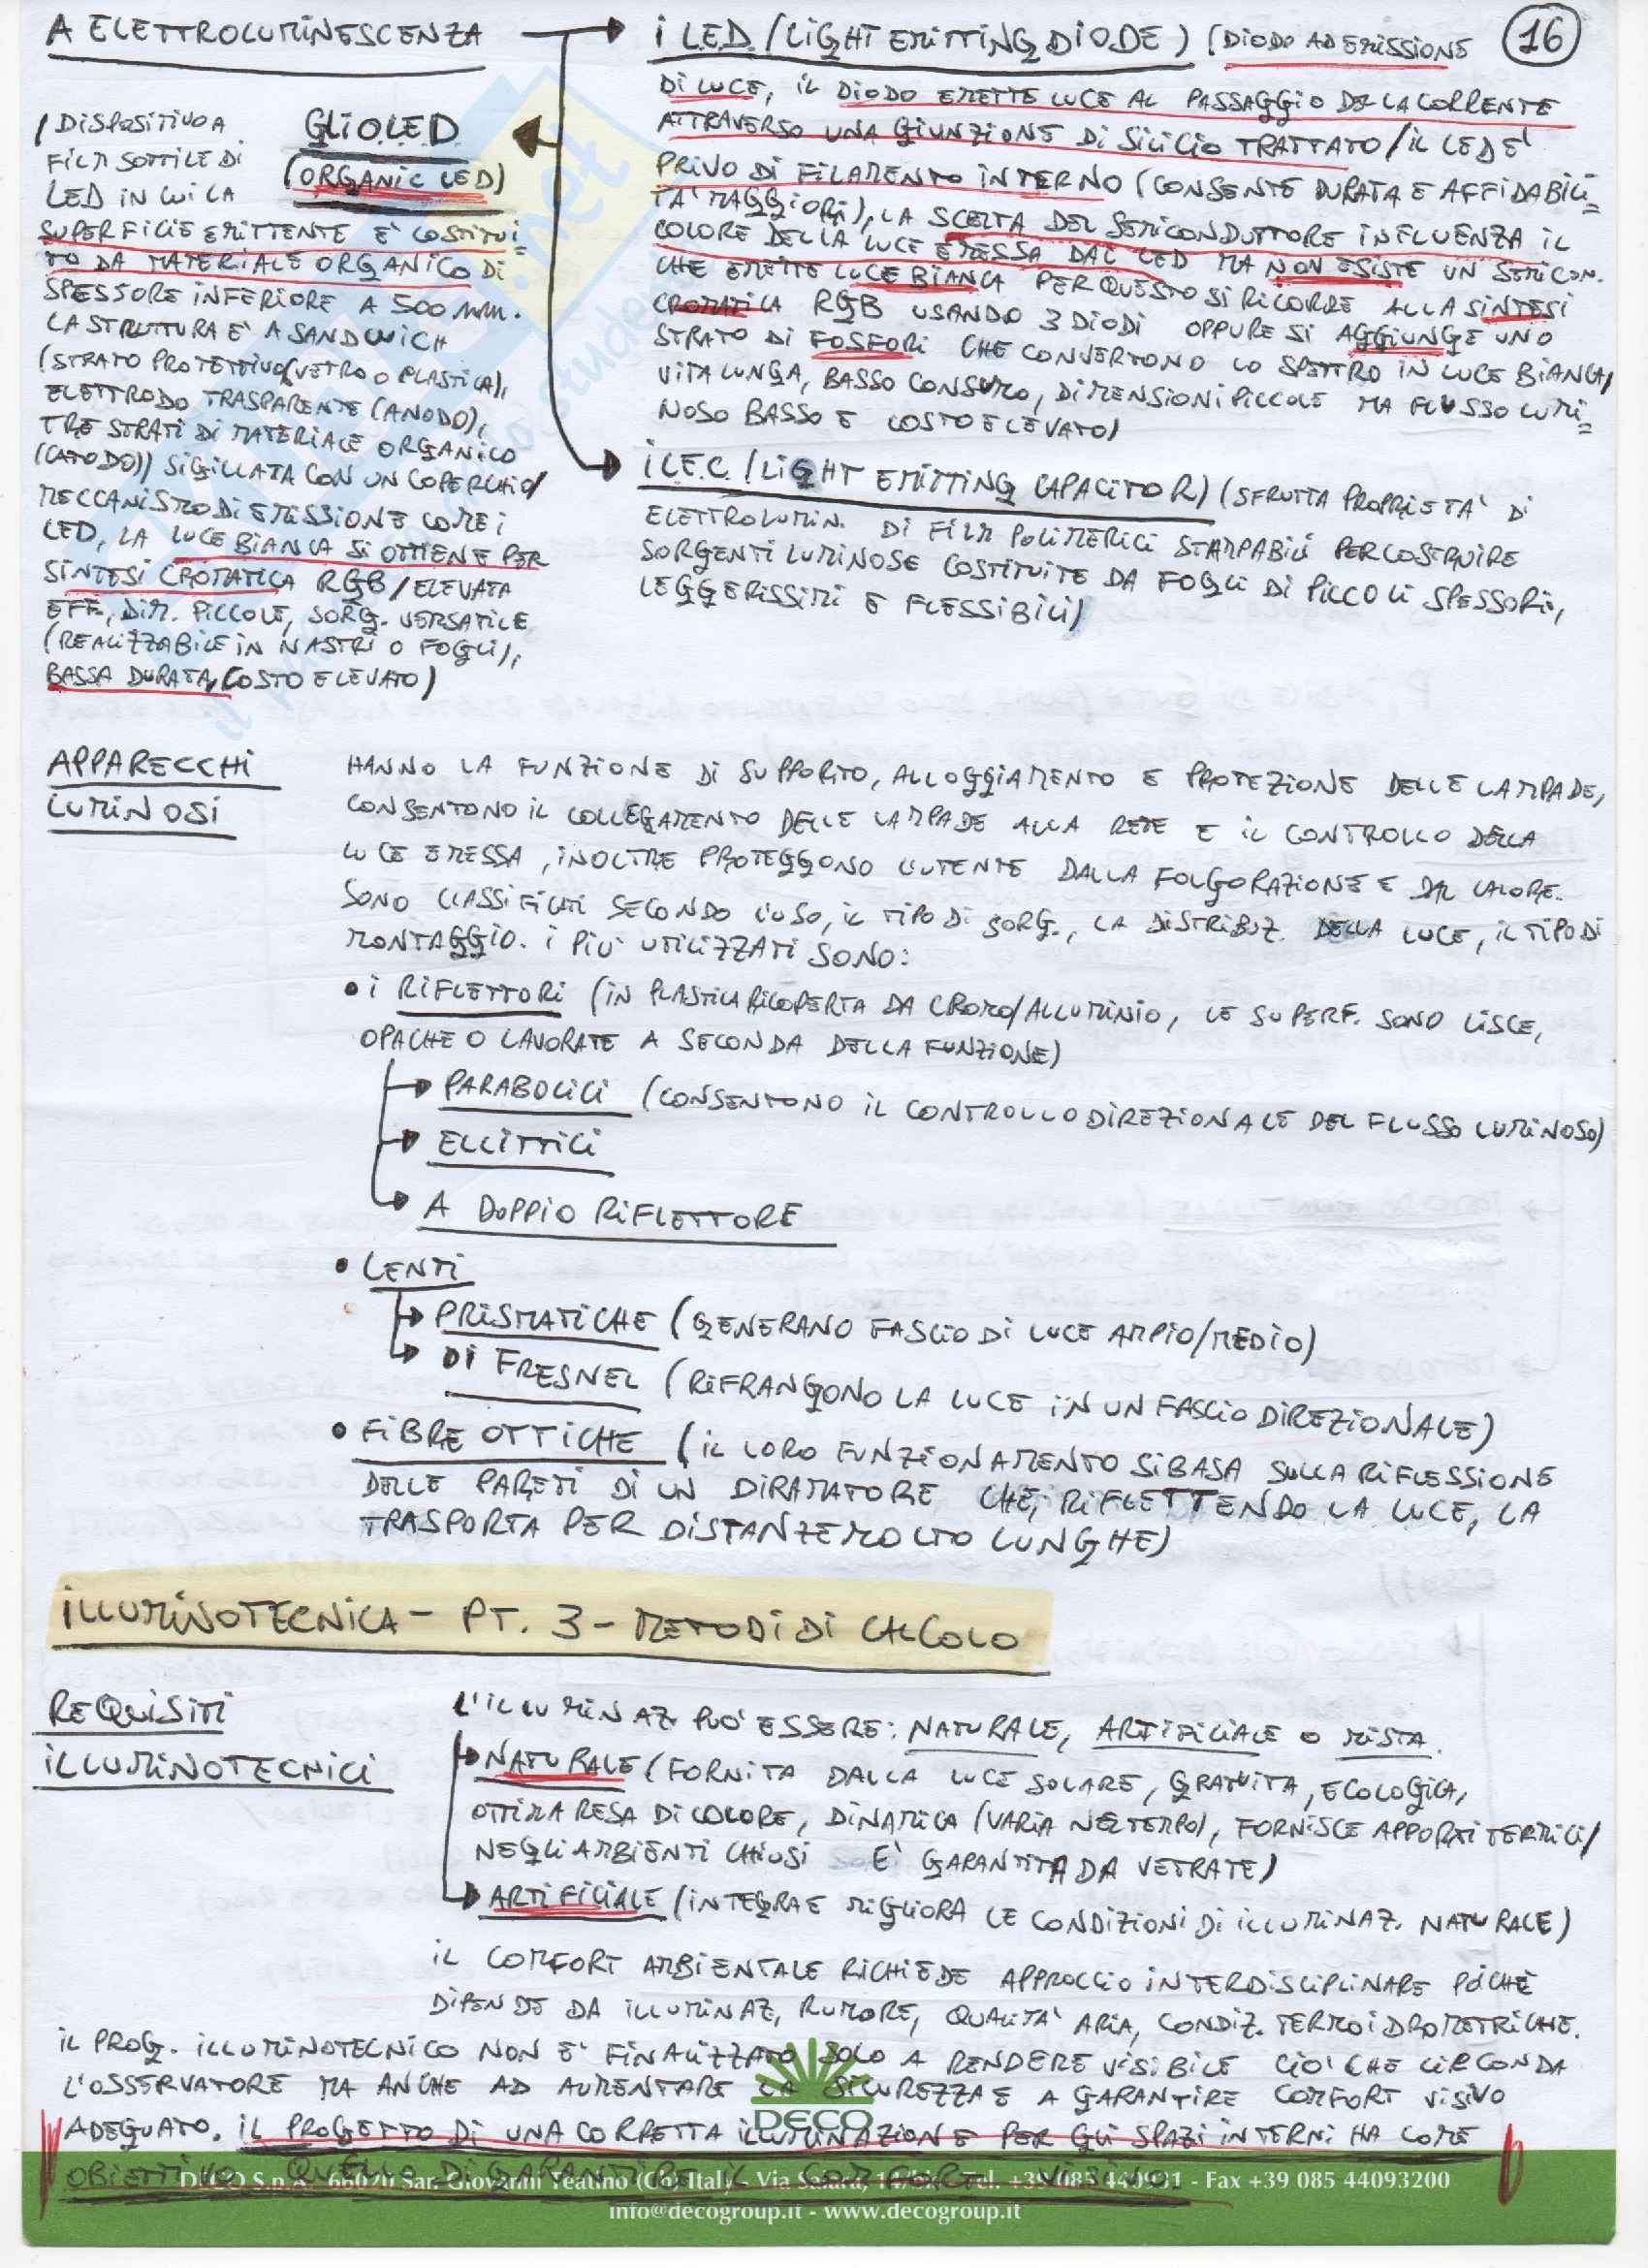 A ELETTROLUMINESCENZA
16
i L.E.D. (LIGHT EMITTING DIODE) (DIODO AD EMISSIONE
DI LUCE, IL DIODO EMETTE LUCE AL PASSAGGIO DELLA CORRENTE
ATTRAVERSO UNA GIUNZIONE DI SILICIO TRATTATO/IL LED E'
PRIVO DI FILAMENTO INTERNO (CONSENTE DURATA E AFFIDABILI=
TA' MAGGIORI), LA SCELTA DEL SEMICONDUTTORE INFLUENZA IL
COLORE DELLA LUCE EMESSA DAL LED MA NON ESISTE UN SEMICON.
CHE EMETTE LUCE BIANCA PER QUESTO SI RICORRE ALLA SINTESI
CROMATICA RGB USANDO 3 DIODI OPPURE SI AGGIUNGE UNO
STRATO DI FOSFORI CHE CONVERTONO LO SPETTRO IN LUCE BIANCA/
VITA LUNGA, BASSO CONSUMO, DIMENSIONI PICCOLE MA FLUSSO LUMI=
NOSO BASSO E COSTO ELEVATO)
GLI O.L.E.D.
(ORGANIC LED)
(DISPOSITIVO A
FILM SOTTILE DI
LED IN CUI LA
SUPERFICIE EMITTENTE E' COSTITUI=
TO DA MATERIALE ORGANICO DI
SPESSORE INFERIORE A 500 mm.
LA STRUTTURA E' A SANDWICH
(STRATO PROTETTIVO (VETRO O PLASTICA),
ELETTRODO TRASPARENTE (ANODO),
TRE STRATI DI MATERIALE ORGANICO
(CATODO)) SIGILLATA CON UN COPERCHIO/
MECCANISMO DI EMISSIONE COME I
LED, LA LUCE BIANCA SI OTTIENE PER
SINTESI CROMATICA RGB/ELEVATA
EFF., DIM. PICCOLE, SORG. VERSATILE
(REALIZZABILE IN NASTRI O FOGLI),
BASSA DURATA, COSTO ELEVATO)
i L.E.C. (LIGHT EMITTING CAPACITOR) (SFRUTTA PROPRIETA' DI
ELETTROLUMIN. DI FILM POLIMERICI STAMPABILI PER COSTRUIRE
SORGENTI LUMINOSE COSTITUITE DA FOGLI DI PICCOLI SPESSORI,
LEGGERISSIMI E FLESSIBILI)
APPARECCHI
LUMINOSI
HANNO LA FUNZIONE DI SUPPORTO, ALLOGGIAMENTO E PROTEZIONE DELLE LAMPADE,
CONSENTONO IL COLLEGAMENTO DELLE LAMPADE ALLA RETE E IL CONTROLLO DELLA
LUCE EMESSA, INOLTRE PROTEGGONO L'UTENTE DALLA FOLGORAZIONE E DAL CALORE.
SONO CLASSIFICATI SECONDO L'USO, IL TIPO DI SORG., LA DISTRIBUZ. DELLA LUCE, IL TIPO DI
MONTAGGIO. I PIU' UTILIZZATI SONO:
• i RIFLETTORI (IN PLASTICA RICOPERTA DA CROMO/ALLUMINIO, LE SUPERF. SONO LISCE,
OPACHE O LAVORATE A SECONDA DELLA FUNZIONE)
PARABOLICI (CONSENTONO IL CONTROLLO DIREZIONALE DEL FLUSSO LUMINOSO)
ELLITTICI
A DOPPIO RIFLETTORE
• LENTI
PRISMATICHE (GENERANO FASCIO DI LUCE AMPIO/MEDIO)
DI FRESNEL (RIFRANGONO LA LUCE IN UN FASCIO DIREZIONALE)
• FIBRE OTTICHE (IL LORO FUNZIONAMENTO SI BASA SULLA RIFLESSIONE
DELLE PARETI DI UN DIRAMATORE CHE, RIFLETTENDO LA LUCE, LA
TRASPORTA PER DISTANZE MOLTO LUNGHE)
ILLUMINOTECNICA - PT. 3 - METODI DI CALCOLO
REQUISITI
ILLUMINOTECNICI
L'ILLUMINAZ. PUO' ESSERE: NATURALE, ARTIFICIALE O MISTA.
NATURALE (FORNITA DALLA LUCE SOLARE, GRATUITA, ECOLOGICA,
OTTIMA RESA DI COLORE, DINAMICA (VARIA NEL TEMPO), FORNISCE APPORTI TERMICI/
NEGLI AMBIENTI CHIUSI E' GARANTITA DA VETRATE)
ARTIFICIALE (INTEGRA E MIGLIORA LE CONDIZIONI DI ILLUMINAZ. NATURALE)
IL COMFORT AMBIENTALE RICHIEDE APPROCCIO INTERDISCIPLINARE POICHÈ
DIPENDE DA ILLUMINAZ, RUMORE, QUALITA' ARIA, CONDIZ. TERMOIDROMETRICHE.
IL PROG. ILLUMINOTECNICO NON E' FINALIZZATO SOLO A RENDERE VISIBILE CIO' CHE CIRCONDA
L'OSSERVATORE MA ANCHE AD AUMENTARE LA SICUREZZA E A GARANTIRE COMFORT VISIVO
ADEGUATO. IL PROGETTO DI UNA CORRETTA ILLUMINAZIONE PER GLI SPAZI INTERNI HA COME
OBIETTIVO QUELLO DI GARANTIRE IL COMFORT VISIVO.
DECO
DECO S.p.A. 66020 San Giovanni Teatino (Ch) Italy - Via Salara, Tel. +39 085 440931 - Fax +39 085 44093200
info@decogroup.it - www.decogroup.it